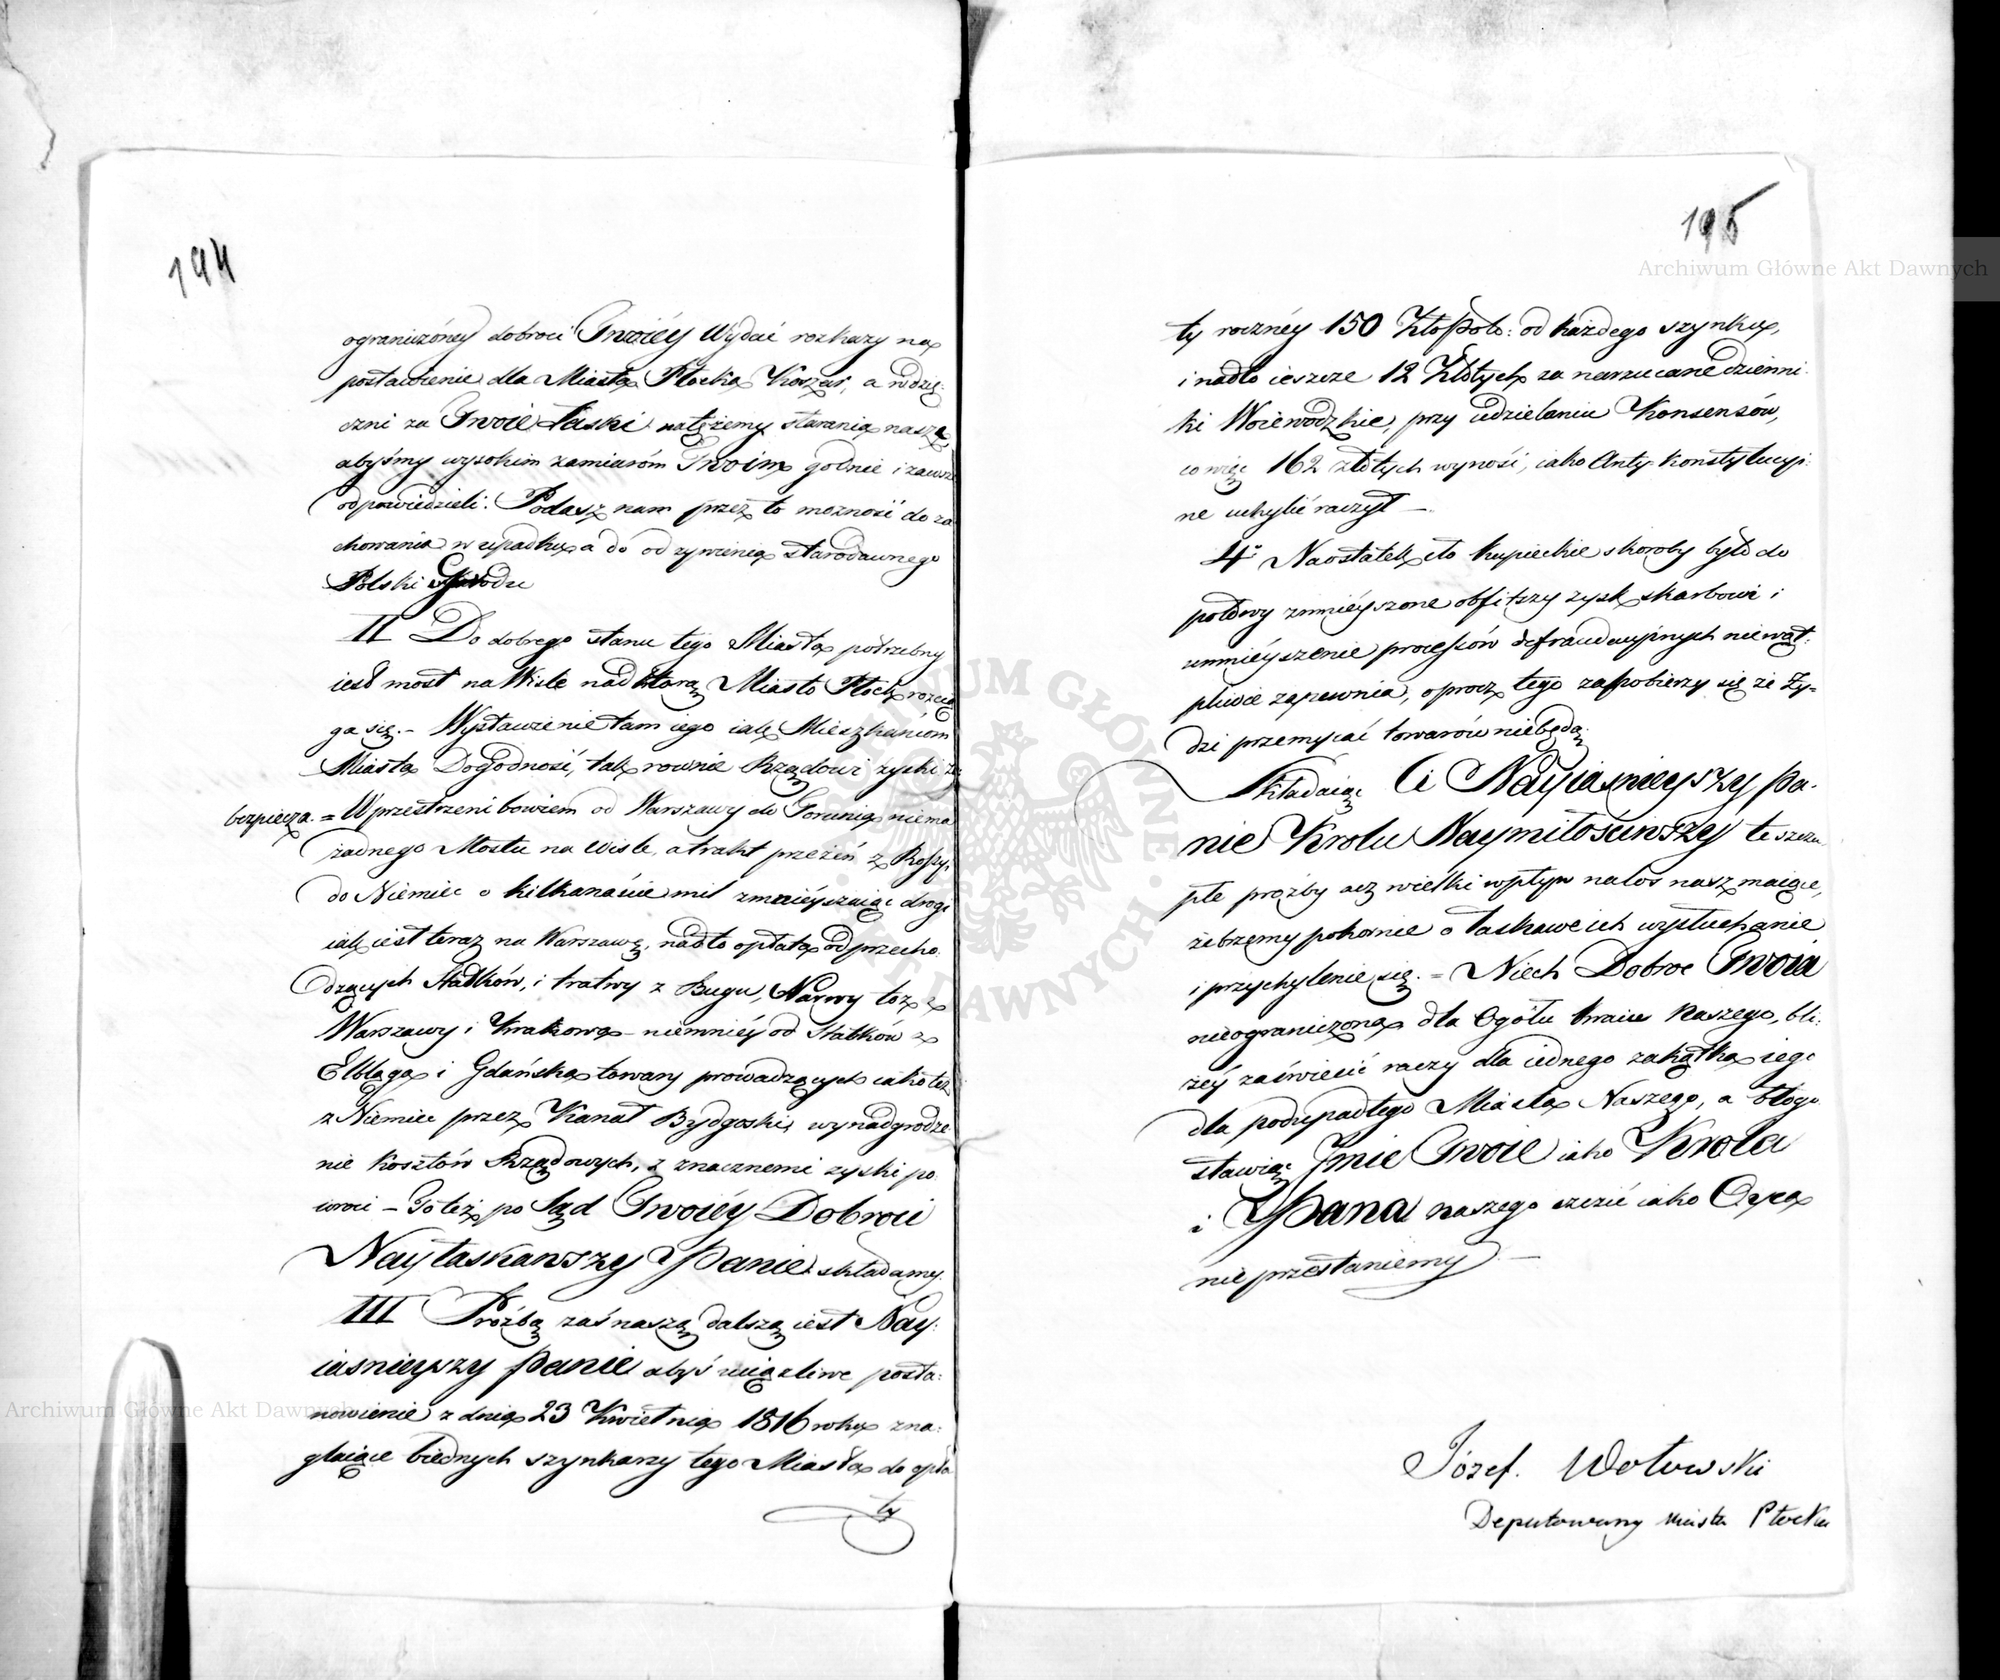 194
ograniczóney dobroci Twoiéy Wydać rozkazy na
postawienie dla Miasta Płocka Koszar, a wdzię:
czni za Twoie Łaski natężemy starania nasze,
abyśmy wysokim zamiarom Twoim godnie i zawsze
odpowiedzieli: Podasz nam przez to możność do za
chowania w upadku a do odżywienia starodawnego
Polski Grodu
II Do dobrego stanu tego Miasta potrzebny
iest most na Wisle nad którą Miasto Płock rozcią
ga się. – Wystawienie tam iego iak Mieszkańcom
Miasta Dogodność, tak rownie Rządowi zyski za
bezpiecza. = W przestrzeni bowiem od Warszawy do Torunia niema
żadnego Mostu na Wisle, a trakt przezeń z Rossyi
do Niemiec o kilkanaście mil zmnieyszaiąc drogę
iak iest teraz na Warszawę, nadto opłata od przecho
dzących Statków, i tratwy z Bugu, Narwy toż z
Warszawy i Krakowa niemniéy od Statków z
Elbląga i Gdańska towary prowadzących iako też
z Niemiec przez Kanał Bydgoski, wynadgrodze
nie kosztów Rządowych, z znacznemi zyski po
wroci – To też po Sąd Twoiéy Dobroci
Nayłaskawszy Panie składamy.
III Prózbą zaś naszą dalszą iest Nay:
iasnieyszy Panie abyś uciążliwe posta:
nowienie z dnia 23 Kwietnia 1816 roku zna:
glaiące biednych szynkarzy tego Miasta do opła
ty
195
ty roczney 150 Zło Pols: od każdego szynku,
i nadto ieszcze 12 Złotych za narzucane dzienni:
ki Woiewodzkie, przy udzielaniu Konsensów,
co więc 162 złotych wynosi, iako Anty Konstytucyi:
ne uchylić raczył –
4° Naostatek cło kupieckie skoroby było do
połowy zmniéyszone obfitszy zysk skarbowi i
umniéyszenie processów defraudacyinych niewąt:
pliwie zapewnia, oprocz tego zapobieży się że Ży=
dzi przemycać towarów nie będą.
Składaiąc Ci Nayiasnieyszy Pa:
nie Krolu Naymiłosciwszy te szczu
płe prożby acz wielki wpływ na los nasz maiące,
żebrzemy pokornie o łaskawe ich wysłuchanie
i przychylenie się. = Niech Dobroc Twoia
nieograniczona dla Ogółu kraiu Naszego, bli:
żey zaświecić raczy dla iednego zakątka iego
dla podupadłego Miasta Naszego, a błogo
sławiąc Imie Twoie iako Krola
i Pana naszego czcić iako Oyca
nie przestaniemy –
Józef. Wołowski
Deputowany Miasta Płocka
Archiwum Główne Akt Dawnych
Archiwum Główne Akt Dawnych
ARCHIWUM GŁÓWNE AKT DAWNYCH